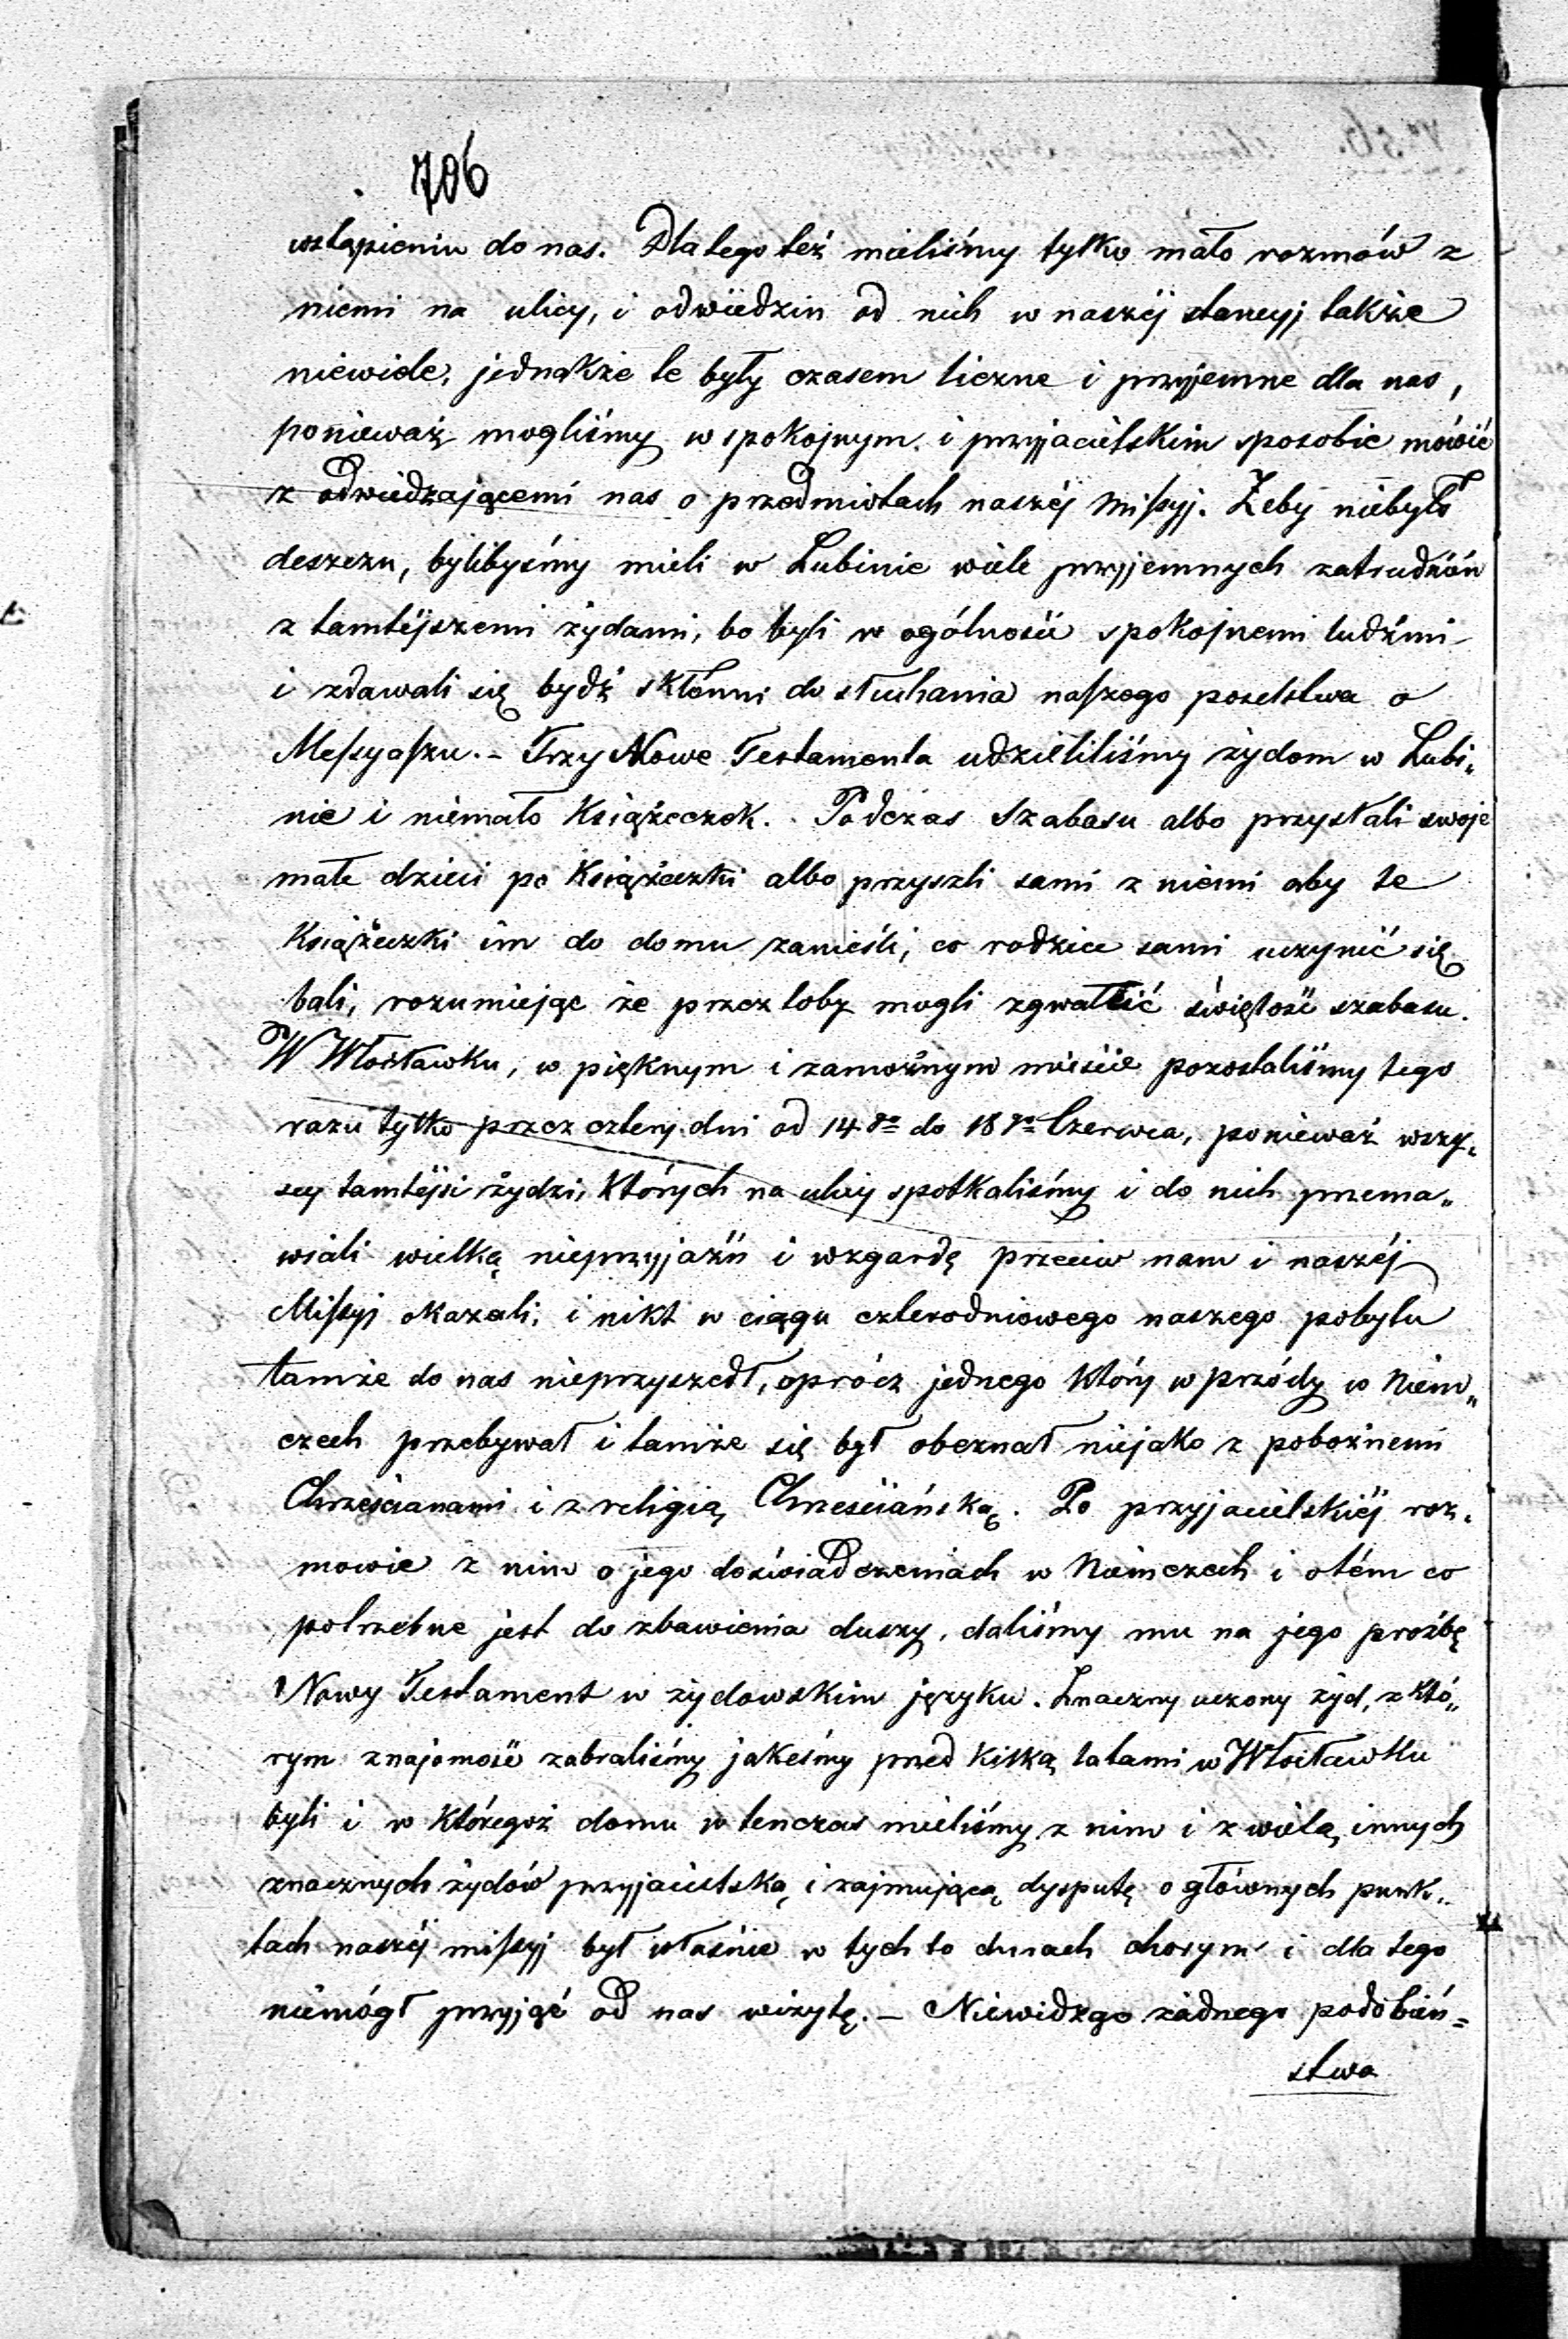 706
wstąpieniu do nas. Dla tego też mieliśmy tylko mało rozmów z
niemi na ulicy, i odwiedzin od nich w naszéj stancyj także
niewiele, jednakże te były czasem liczne i przyjemne dla nas,
ponieważ mogliśmy w spokojnym i przyjacielskim sposobie mówić
z odwiedzającemi nas o przedmiotach naszéj Missyj. Żeby niebyło
deszczu, bylibyśmy mieli w Lubinie wiele przyjemnych zatrudnień
z tamtéjszemi żydami, bo byli w ogólności spokojnemi ludźmi
i zdawali się bydź skłonni do słuchania naszego poselstwa o
Messyaszu. – Trzy Nowe Testamenta udzieliliśmy żydom w Lubi„
nie i niemało Książeczek. Podczas Szabasu albo przysłali swoje
małe dzieci po Książeczki albo przyszli sami z niemi aby te
Książeczki im do domu zanieśli, co rodzice sami uczynić się
bali, rozumiejąc że przez toby mogli zgwałcić świętość szabasu.
W Włocławku, w pięknym i zamożnym mieście pozostaliśmy tego
razu tylko przez cztery dni od 14go do 18go Czerwca, ponieważ wszy„
scy tamtéjsi żydzi, których na ulicy spotkaliśmy i do nich przema„
wiali wielką nieprzyjaźń i wzgardę przeciw nam i naszéj
Missyj okazali, i nikt w ciągu czterodniowego naszego pobytu
tamże do nas nieprzyszedł, oprócz jednego który w przódy w Niem„
czech przebywał i tamże się był obeznał niejako z pobożnemi
Chrześcianami i z religią Chrześciańską. Po przyjacielskiéj roz„
mowie z nim o jego doświadczeniach w Niemczech i o tém co
potrzebne jest do zbawienia duszy, daliśmy mu na jego proźbę
Nowy Testament w żydowskim języku. Znaczny uczony żyd, z któ„
rym znajomość zabraliśmy jakeśmy przed kilką latami w Włocławku
byli i w któregoż domu w tenczas mieliśmy z nim i z wielą innych
znacznych żydów przyjacielską i zajmującą dysputę o głównych punk„
tach naszéj missyj był właśnie w tych to dniach chorym i dla tego
niemógł przyjąć od nas wizytę. – Niewidząc żadnego podobień=
stwa